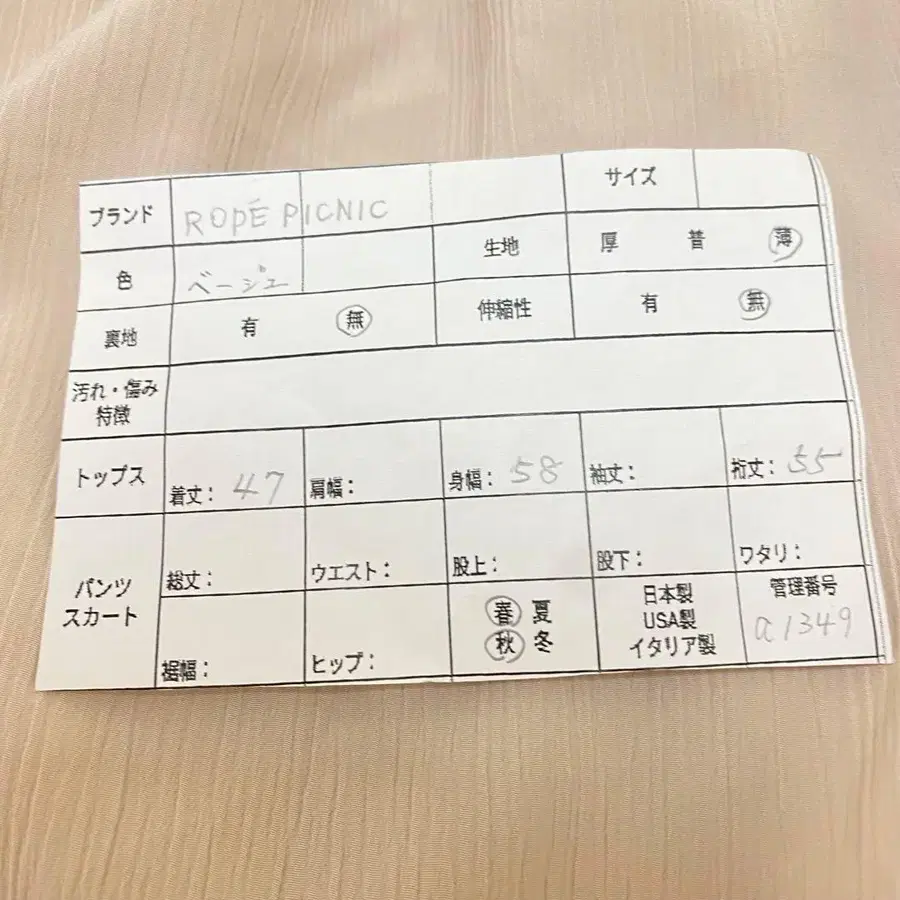 ブランド ROPÉ PICNIC サイズ
色 ベージュ 生地 厚 普 薄
裏地 有 無 伸縮性 有 無
汚れ・傷み
特徴
トップス 着丈: 47 肩幅: 身幅: 58 袖丈: 裄丈: 55
パンツ
スカート
総丈: ウエスト: 股上: 股下: ワタリ:
裾幅: ヒップ:
春 夏
秋 冬
日本製
USA製
イタリア製
管理番号
a1349